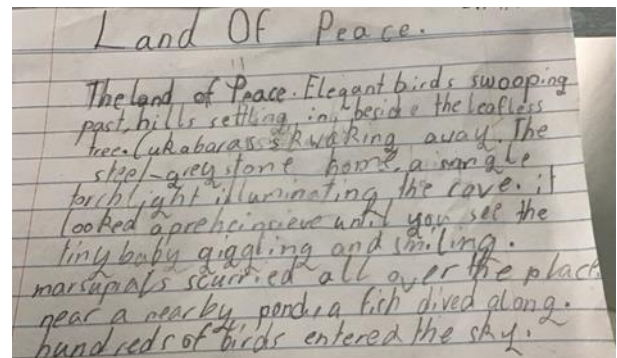 Land Of Peace.
The land of Peace. Elegant birds swooping
past, hills settling in, beside the leafless
tree. Cukabaras skwaking away. The
steel-grey stone home, a single
torchlight illuminating the cave. it
looked aprehcinsieve until you see the
tiny baby giggling and smiling.
marsupials scurried all over the place
near a nearby pond, a fish dived along.
hundreds of birds entered the sky.